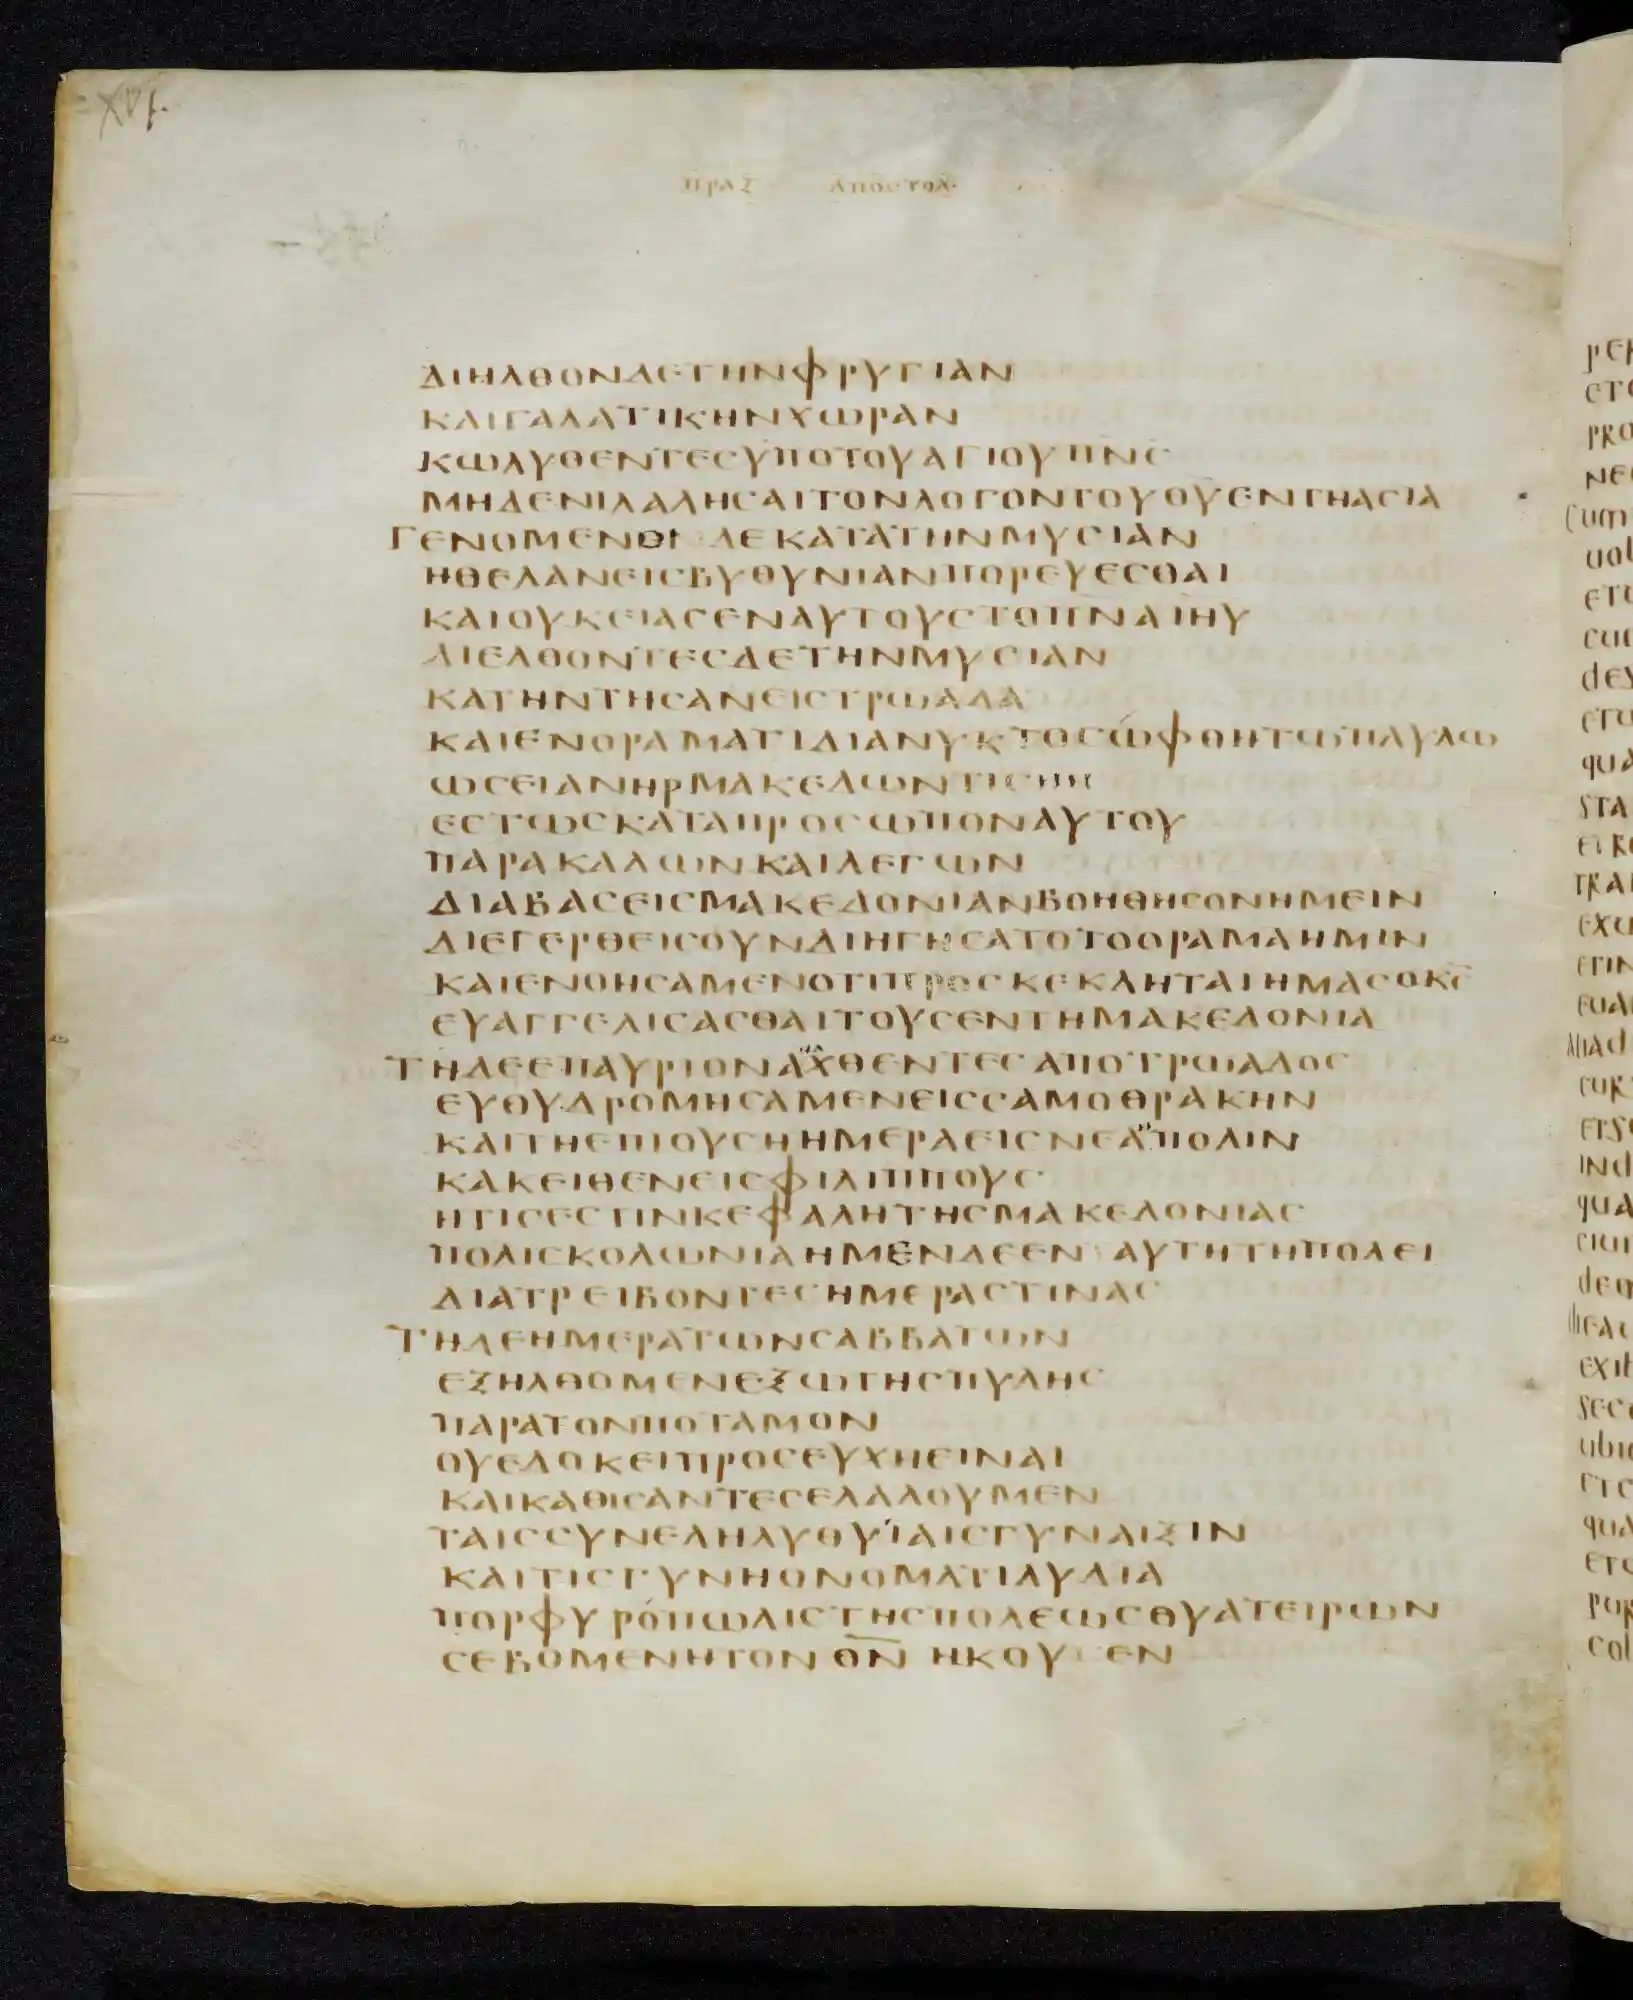 XVI.
ΠΡΑΞ ΑΠΟΣΤΟΛ·
ΔΙΗΛΘΟΝΔΕΤΗΝΦΡΥΓΙΑΝ
ΚΑΙΓΑΛΑΤΙΚΗΝΧΩΡΑΝ
ΚΩΛΥΘΕΝΤΕϹΥΠΟΤΟΥΑΓΙΟΥΠΝϹ
ΜΗΔΕΝΙΛΑΛΗϹΑΙΤΟΝΛΟΓΟΝΤΟΥΘΥΕΝΤΗΑϹΙΑ
ΓΕΝΟΜΕΝΟΙ ΔΕΚΑΤΑΤΗΝΜΥϹΙΑΝ
ΗΘΕΛΑΝΕΙϹΒΥΘΥΝΙΑΝΠΟΡΕΥΕϹΘΑΙ
ΚΑΙΟΥΚΕΙΑϹΕΝΑΥΤΟΥϹΤΟΠΝΑΙΗΥ
ΔΙΕΛΘΟΝΤΕϹΔΕΤΗΝΜΥϹΙΑΝ
ΚΑΤΗΝΤΗϹΑΝΕΙϹΤΡΩΑΔΑ
ΚΑΙΕΝΟΡΑΜΑΤΙΔΙΑΝΥΚΤΟϹΩΦΘΗΤΩΠΑΥΛΩ
ΩϹΕΙΑΝΗΡΜΑΚΕΔΩΝΤΙϹΗΝ
ΕϹΤΩϹΚΑΤΑΠΡΟϹΩΠΟΝΑΥΤΟΥ
ΠΑΡΑΚΑΛΩΝΚΑΙΛΕΓΩΝ
ΔΙΑΒΑϹΕΙϹΜΑΚΕΔΟΝΙΑΝΒΟΗΘΗϹΟΝΗΜΕΙΝ
ΔΙΕΓΕΡΘΕΙϹΟΥΝΔΙΗΓΗϹΑΤΟΤΟΟΡΑΜΑΗΜΙΝ
ΚΑΙΕΝΟΗϹΑΜΕΝΟΤΙΠΡΟϹΚΕΚΛΗΤΑΙΗΜΑϹΟΚϹ
ΕΥΑΓΓΕΛΙϹΑϹΘΑΙΤΟΥϹΕΝΤΗΜΑΚΕΔΟΝΙΑ
ΤΗΔΕΕΠΑΥΡΙΟΝΑΧΘΕΝΤΕϹΑΠΟΤΡΩΑΔΟϹ
ΕΥΘΥΔΡΟΜΗϹΑΜΕΝΕΙϹϹΑΜΟΘΡΑΚΗΝ
ΚΑΙΤΗΕΠΙΟΥϹΗΗΜΕΡΑΕΙϹΝΕΑΠΟΛΙΝ
ΚΑΚΕΙΘΕΝΕΙϹΦΙΛΙΠΠΟΥϹ
ΗΤΙϹΕϹΤΙΝΚΕΦΑΛΗΤΗϹΜΑΚΕΔΟΝΙΑϹ
ΠΟΛΙϹΚΟΛΩΝΙΑΗΜΕΝΔΕΕΝ ΑΥΤΗΤΗΠΟΛΕΙ
ΔΙΑΤΡΕΙΒΟΝΤΕϹΗΜΕΡΑϹΤΙΝΑϹ
ΤΗΔΕΗΜΕΡΑΤΩΝϹΑΒΒΑΤΩΝ
ΕΞΗΛΘΟΜΕΝΕΞΩΤΗϹΠΥΛΗϹ
ΠΑΡΑΤΟΝΠΟΤΑΜΟΝ
ΟΥΕΔΟΚΕΙΠΡΟϹΕΥΧΗΕΙΝΑΙ
ΚΑΙΚΑΘΙϹΑΝΤΕϹΕΛΑΛΟΥΜΕΝ
ΤΑΙϹϹΥΝΕΛΗΛΥΘΥΙΑΙϹΓΥΝΑΙΞΙΝ
ΚΑΙΤΙϹΓΥΝΗΟΝΟΜΑΤΙΛΥΔΙΑ
ΠΟΡΦΥΡΟΠΩΛΙϹΤΗϹΠΟΛΕΩϹΘΥΑΤΕΙΡΩΝ
ϹΕΒΟΜΕΝΗΤΟΝΘΝ ΗΚΟΥϹΕΝ